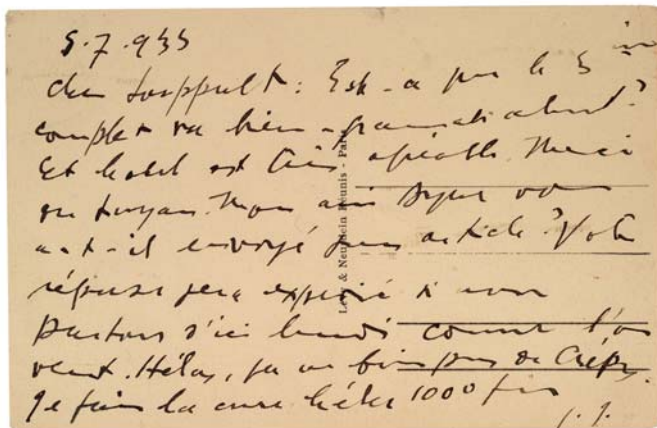 5.7.933
cher Souppault: Est-ce que le 5
complet va bien - grammaticalement?
Cet hotel est très agréable. Merci
du tuyau. Mon ami vous
a-t-il envoyé son article? Votre
réponse sera expédié si nous
partons d'ici lundi comme l'on
veut. Hélas, je ne bois pas de Crépy.
Je fais la cure hélas 1000 fois
J.J.
Lévy & Neurdein Réunis - Paris